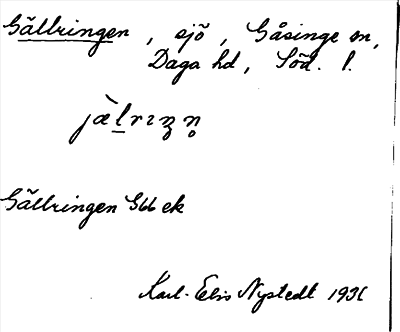 Gällringen, sjö, Gåsinge sn,
Daga hd, Söd. l.
jæ̀lrɪŋn̥
Gällringen Gbb ek
Karl-Elis Nystedt 1931